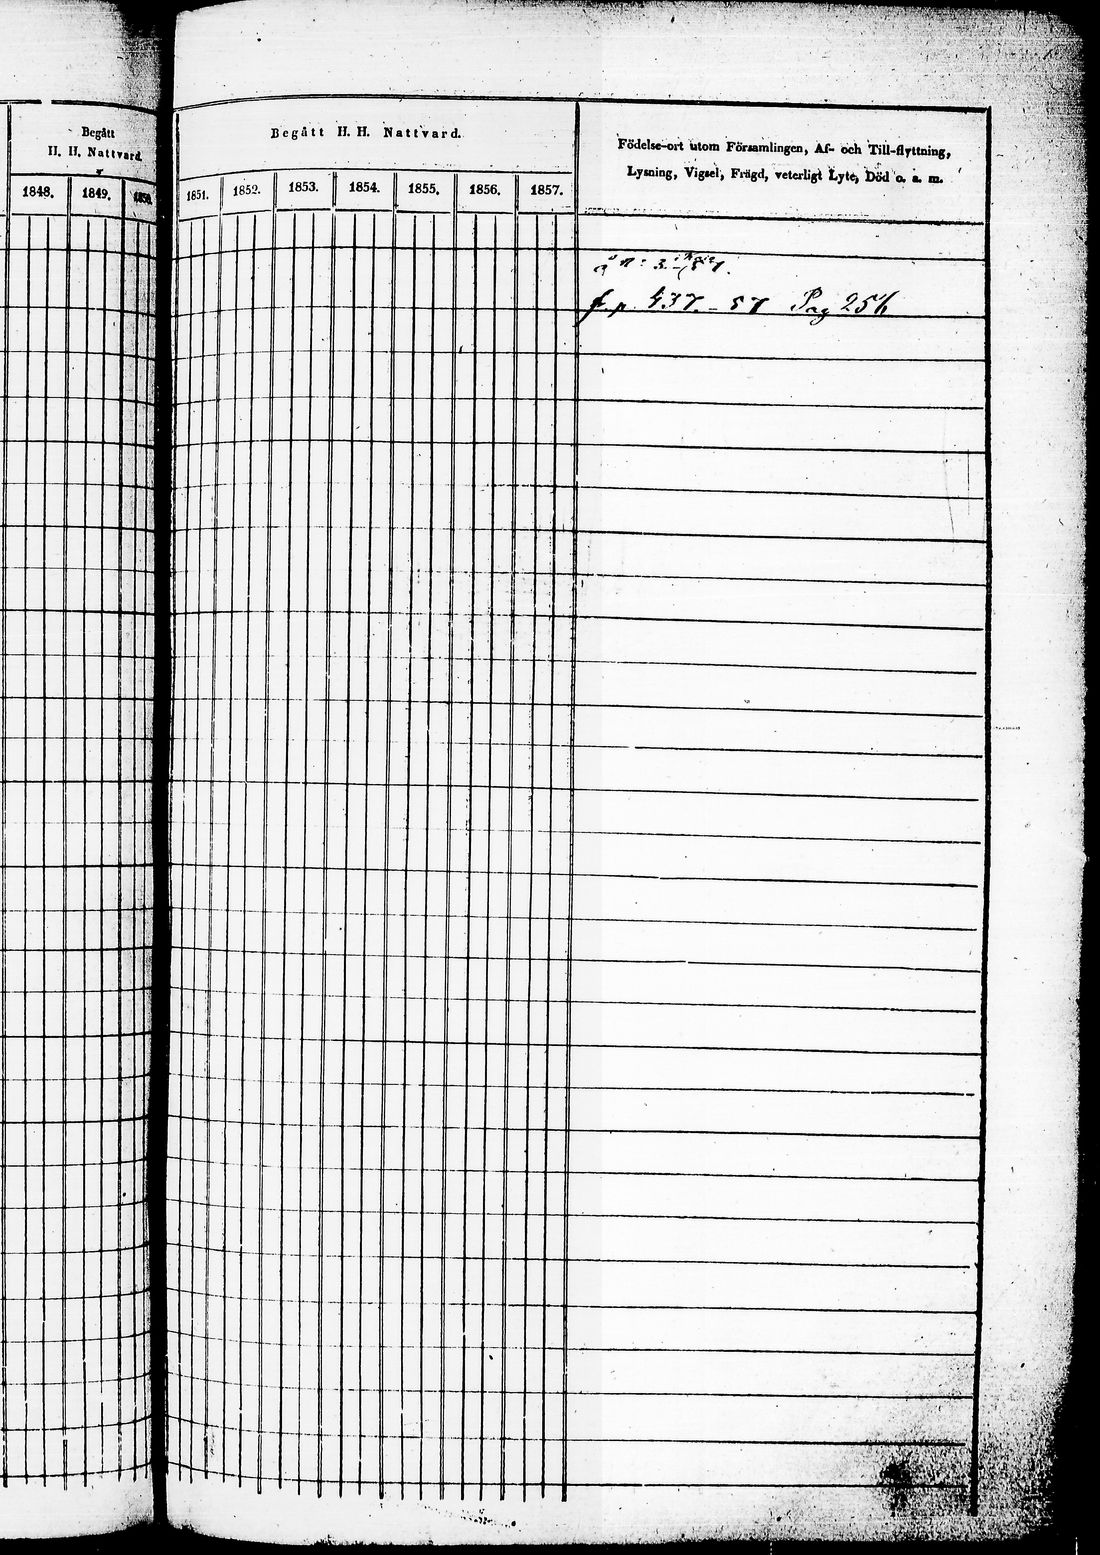 Begått
H. H. Nattvard.
1848. 1849. 1850.
Begått H. H. Nattvard.
1851. 1852. 1853. 1854. 1855. 1856. 1857.
Födelse-ort utom Församlingen, Af- och Till-flyttning,
Lysning, Vigsel, Frägd, veterligt Lyte, Död o. a. m.
f. p. 437. - 57 Pag 256